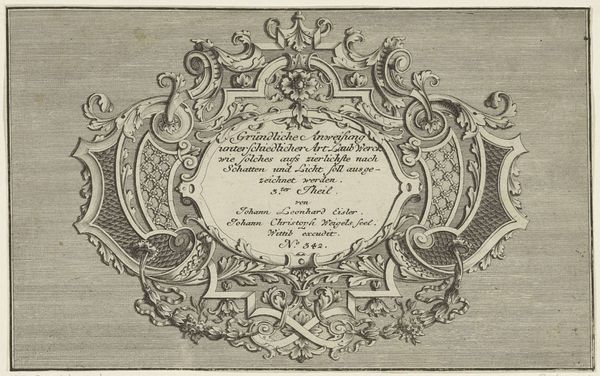 Gründliche Anweisung
unterschiedlicher Art Laub Werck
wie solches aufs zierlichste nach
Schatten und Licht soll ausge-
zeichnet werden.
3.ter Theil.
von
Johann Leonhard Eisler.
Johann Christoph Weigels seel.
Wittib excudit.
No. 342.